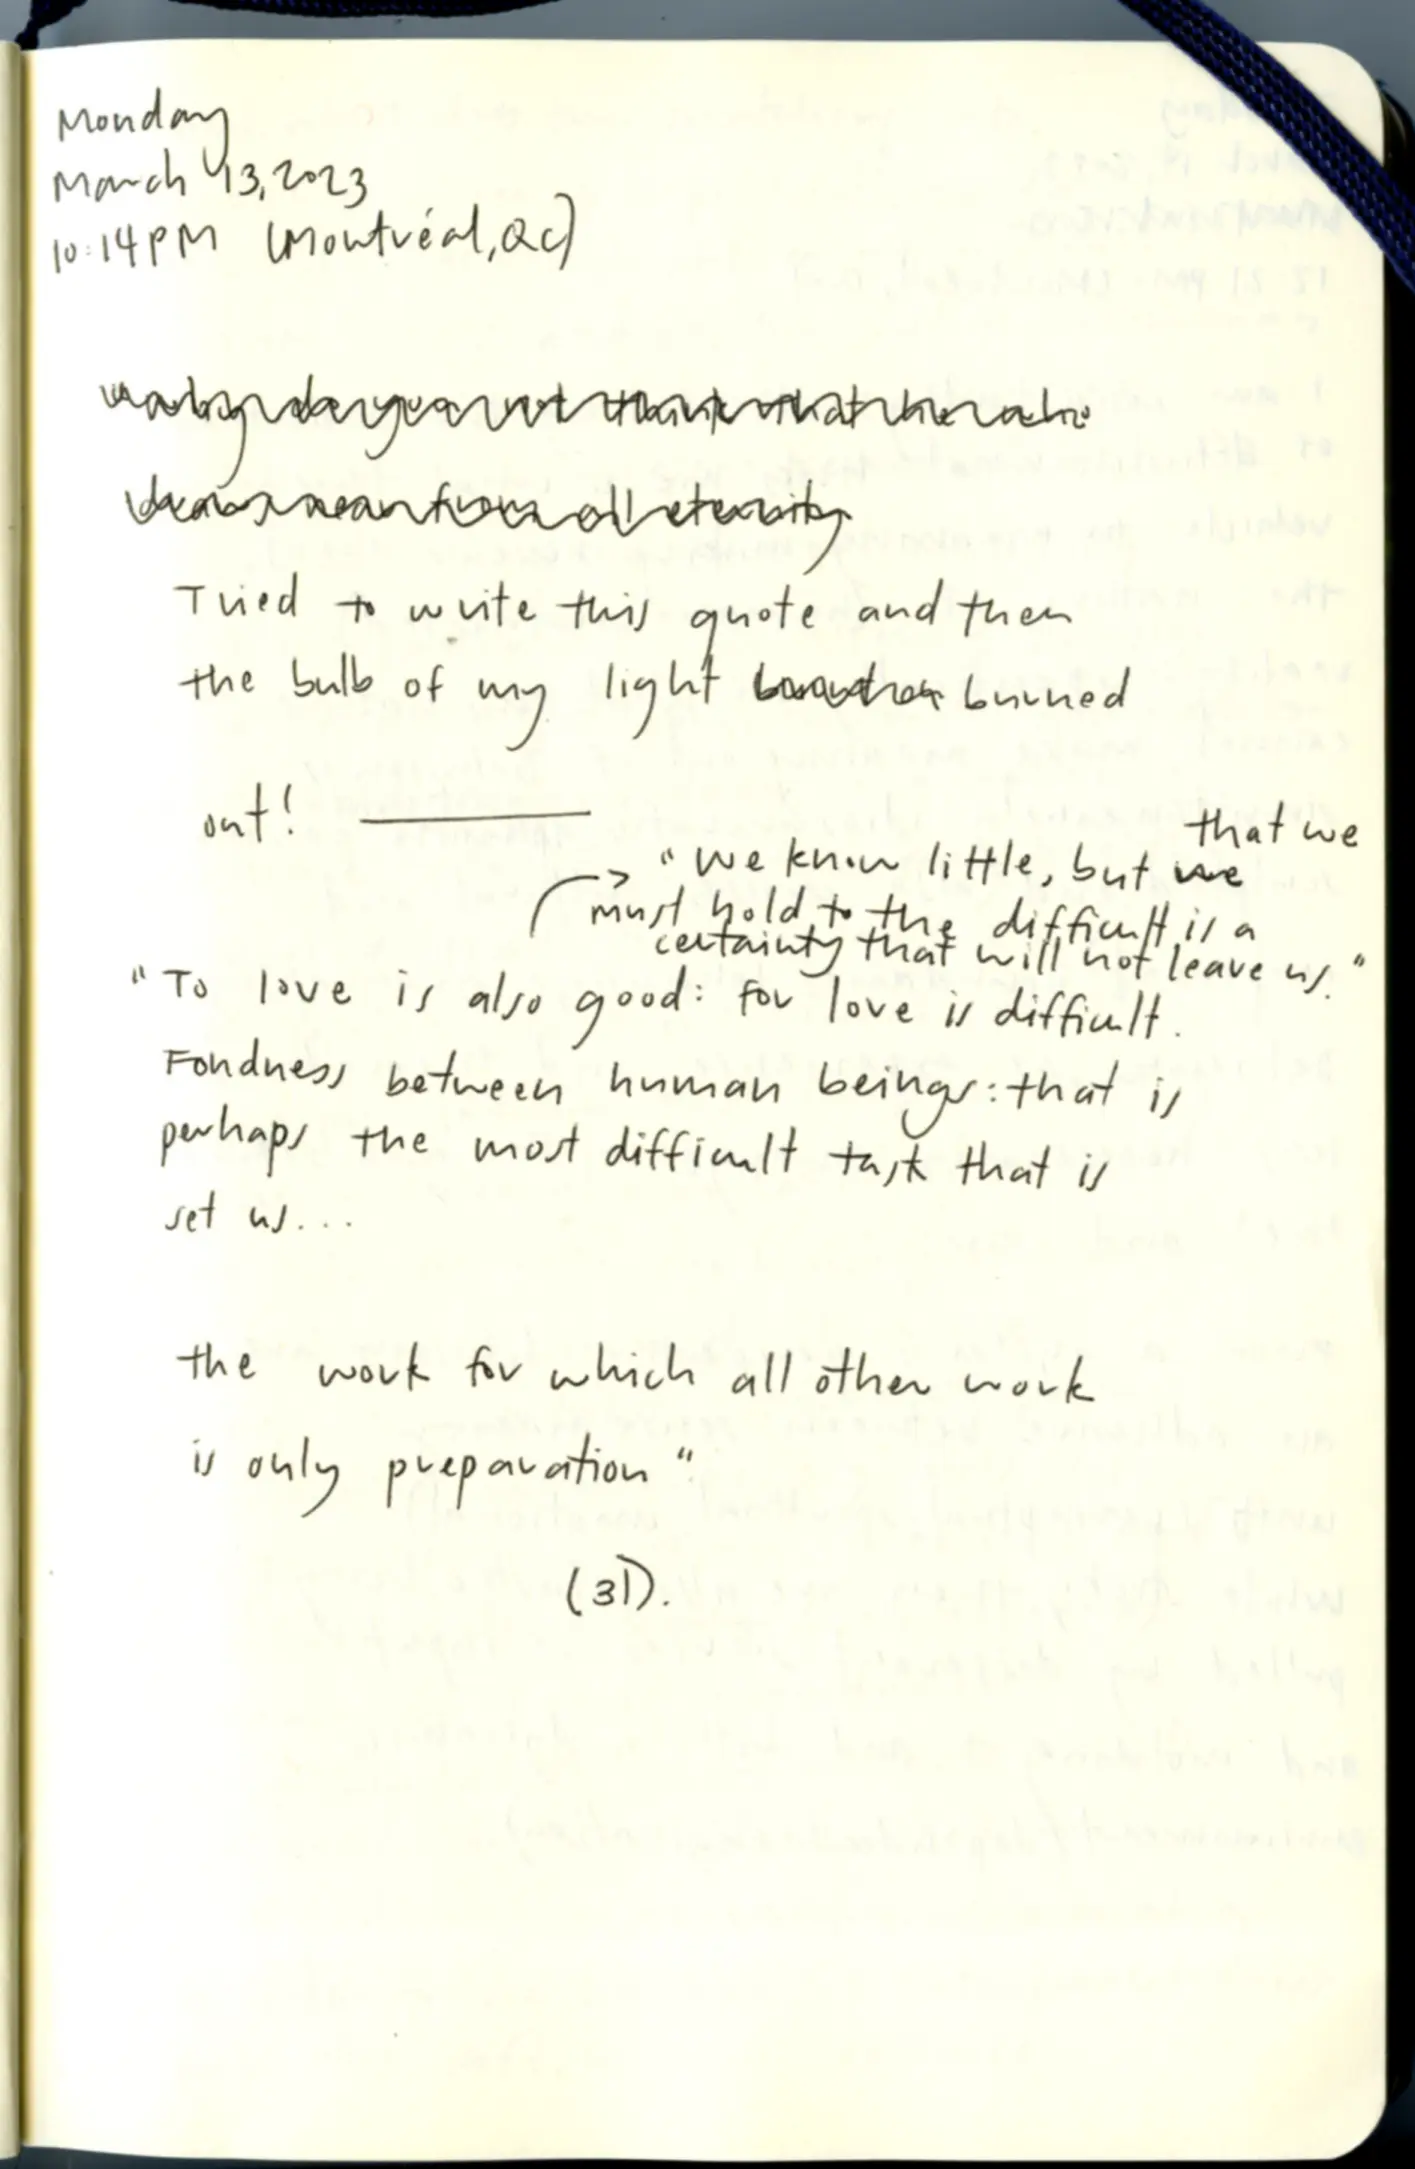 Monday
March 13, 2023
10:14PM (Montréal, QC)
why do you not think that he who
draws near from all eternity
Tried to write this quote and then
the bulb of my light burned
out!
that we
"We know little, but we
must hold to the difficult is a
certainty that will not leave us."
"To love is also good: for love is difficult.
Fondness between human beings: that is
perhaps the most difficult task that is
set us...
the work for which all other work
is only preparation"
(31).